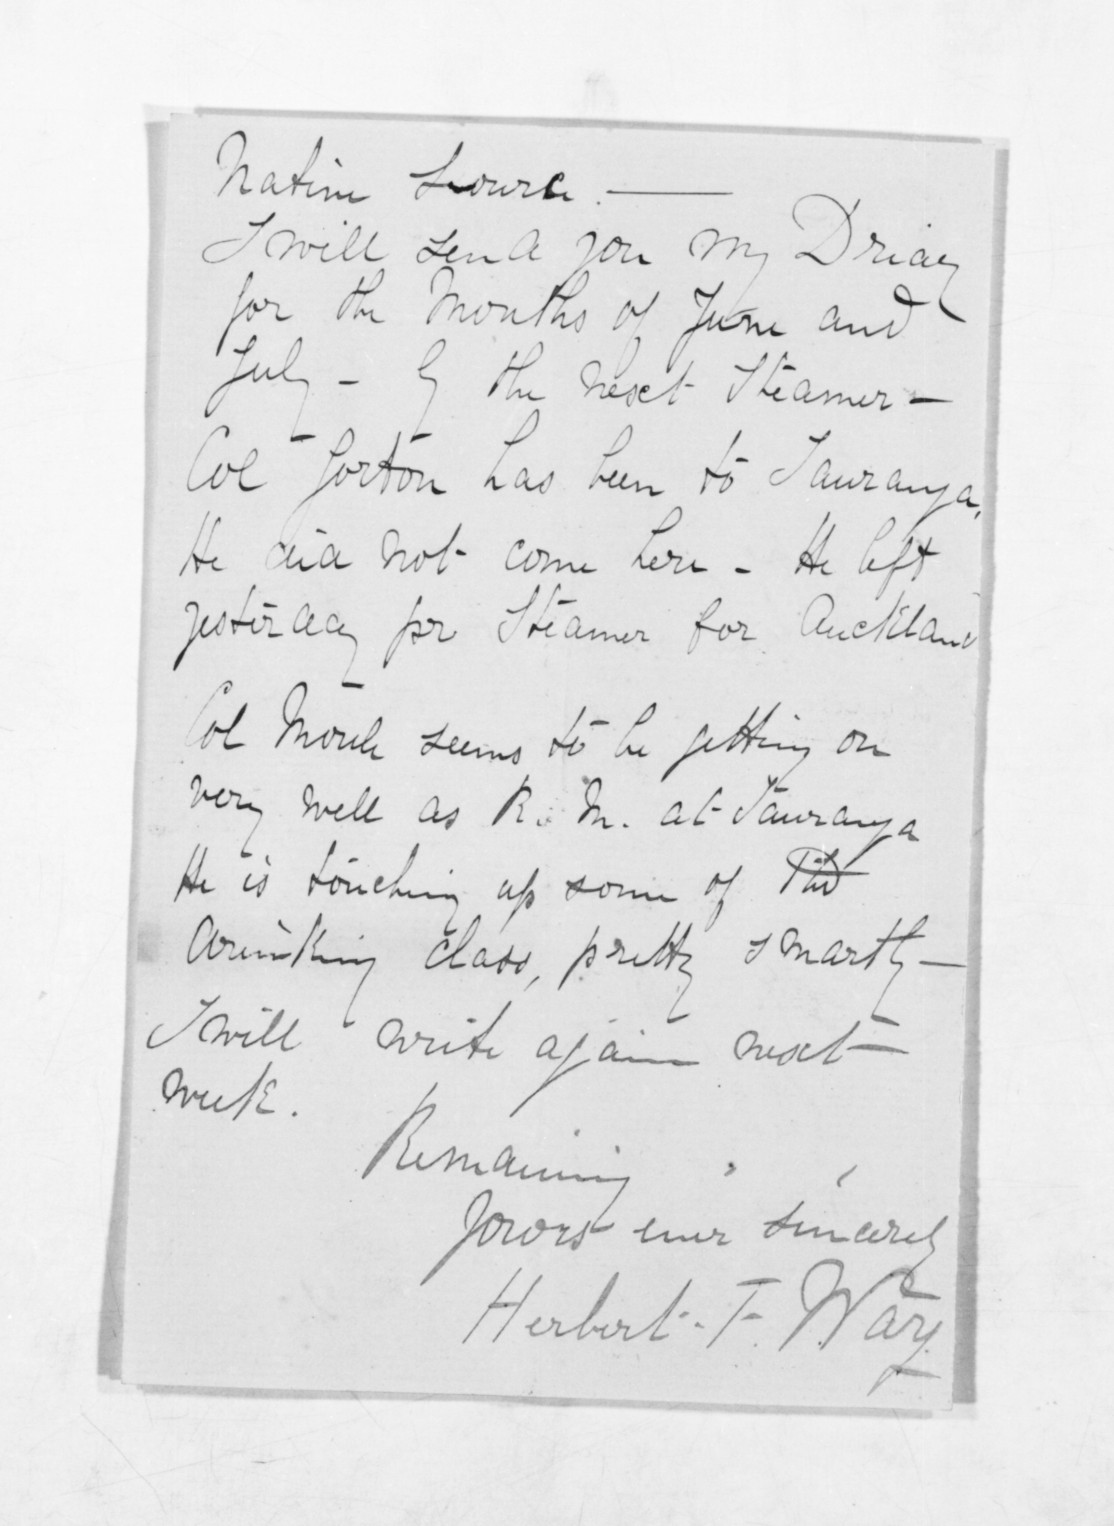 Native Source. —
I will send you my Driay
for the Months of June and
July - by the next Steamer -
Col Gorton has been to Tauranga.
He did not come here - He left
yesterday pr Steamer for Auckland
Col Moule seems to be getting on
very well as R. M. at Tauranga
He is touching up some of the
drinking class, pretty smartly -
I will write again next
week.
Remaining
Yours ever sincerely
Herbert. F. Way